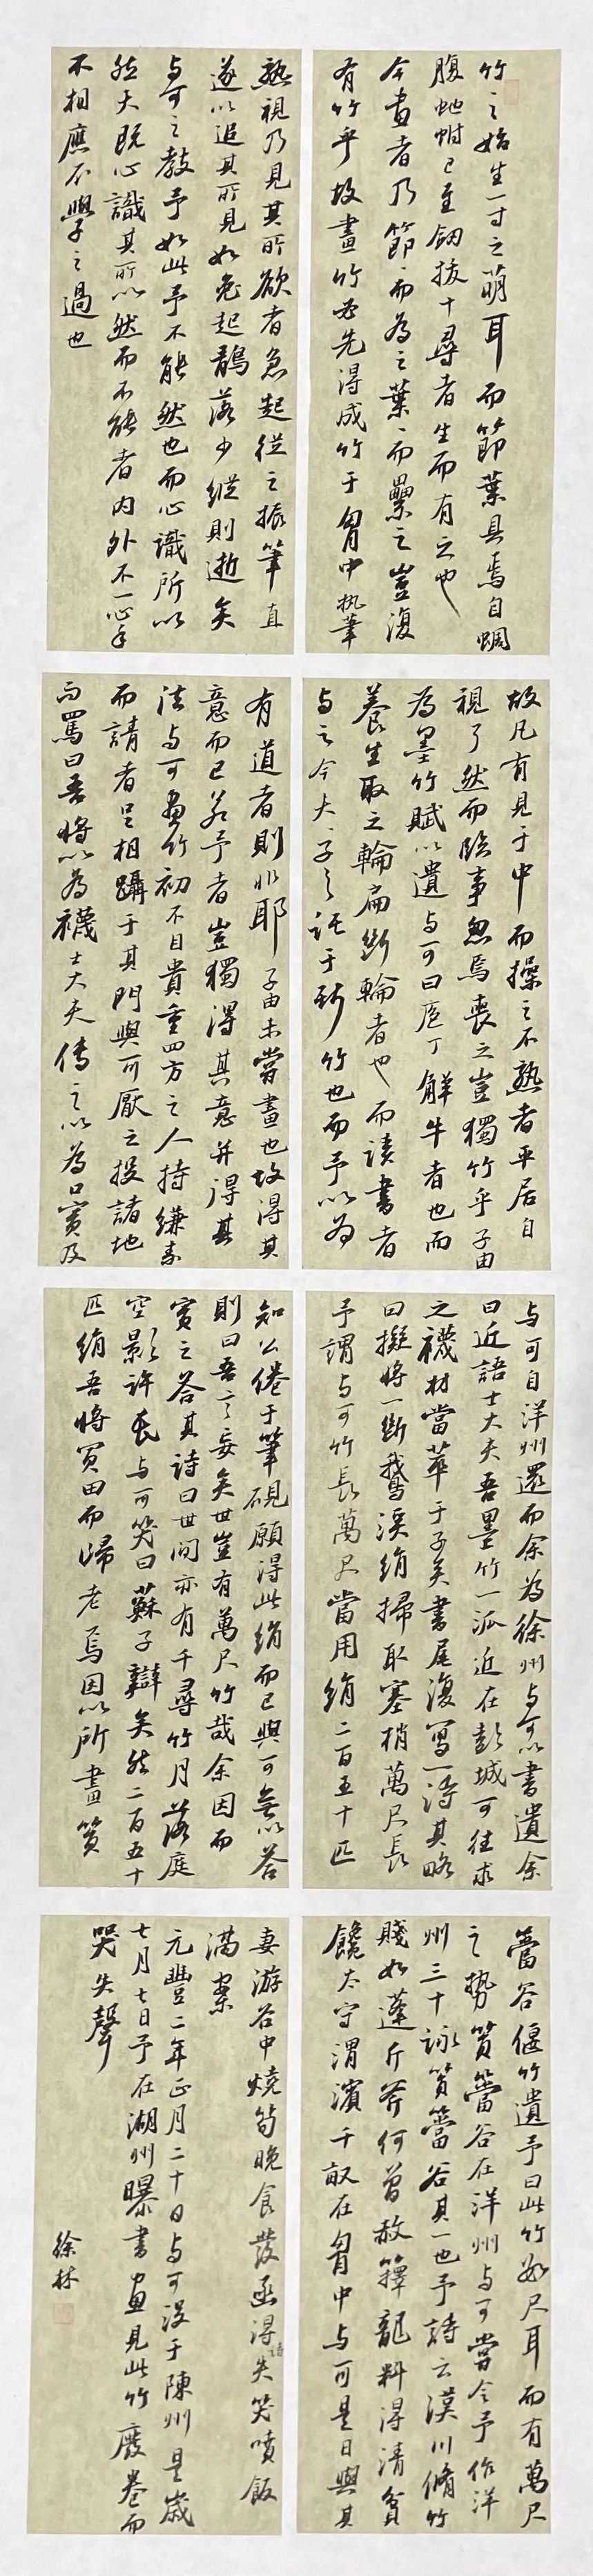 竹之始生一寸之萌耳而節葉具焉自蜩
腹虵蚹已至釰拔十尋者生而有之也
今畫者乃節、而為之葉、而壘之豈復
有竹乎故畫竹必先得成竹于胷中执筆
熟視乃見其所欲者急起從之振筆直
遂以追其所見如兔起鶻落少縱則逝矣
与可之教予如此予不能然也而心識所以
然夫既心識其所以然而不能者内外不一心手
不相應不學之過也
故凡有見于中而操之不熟者平居自
視了然而臨事忽焉喪之豈獨竹乎子由
為墨竹賦以遺与可曰庖丁解牛者也而
養生取之輪扁斲輪者也而讀書者
与之今夫、子之託于斯竹也而予以為
有道者則非耶子由未嘗畫也故得其
意而已若予者豈獨得其意并得其
法与可畫竹初不自貴重四方之人持縑素
而請者足相躡于其門與可厭之投諸地
而罵曰吾將以為襪士大夫傳之以為口實及
与可自洋州還而余為徐州与可以書遺余
曰近語士大夫吾墨竹一派近在彭城可往求
之襪材當萃于子矣書尾復寫一詩其略
曰擬將一斷鵞溪絹掃取寒梢萬尺長
予謂与可竹長萬尺當用絹二百五十匹
知公倦于筆硯願得此絹而已與可無以答
則曰吾言妄矣世豈有萬尺竹哉余因而
實之答其詩曰世间亦有千尋竹月落庭
空影許長与可笑曰蘇子辯矣然二百五十
匹絹吾將買田而歸老焉因以所畫篔
簹谷偃竹遺予曰此竹數尺耳而有萬尺
之勢篔簹谷在洋州与可嘗令予作洋
州三十詠篔簹谷其一也予詩云漢川脩竹
賤如蓬斤斧何曾赦籜龍料得清貧
饞太守渭濱千畝在胷中与可是日與其
妻游谷中燒筍晚食發函得詩失笑噴飯
滿案
元豐二年正月二十日与可沒于陳州是歲
七月七日予在湖州曝書畫見此竹廢卷而
哭失聲
徐林